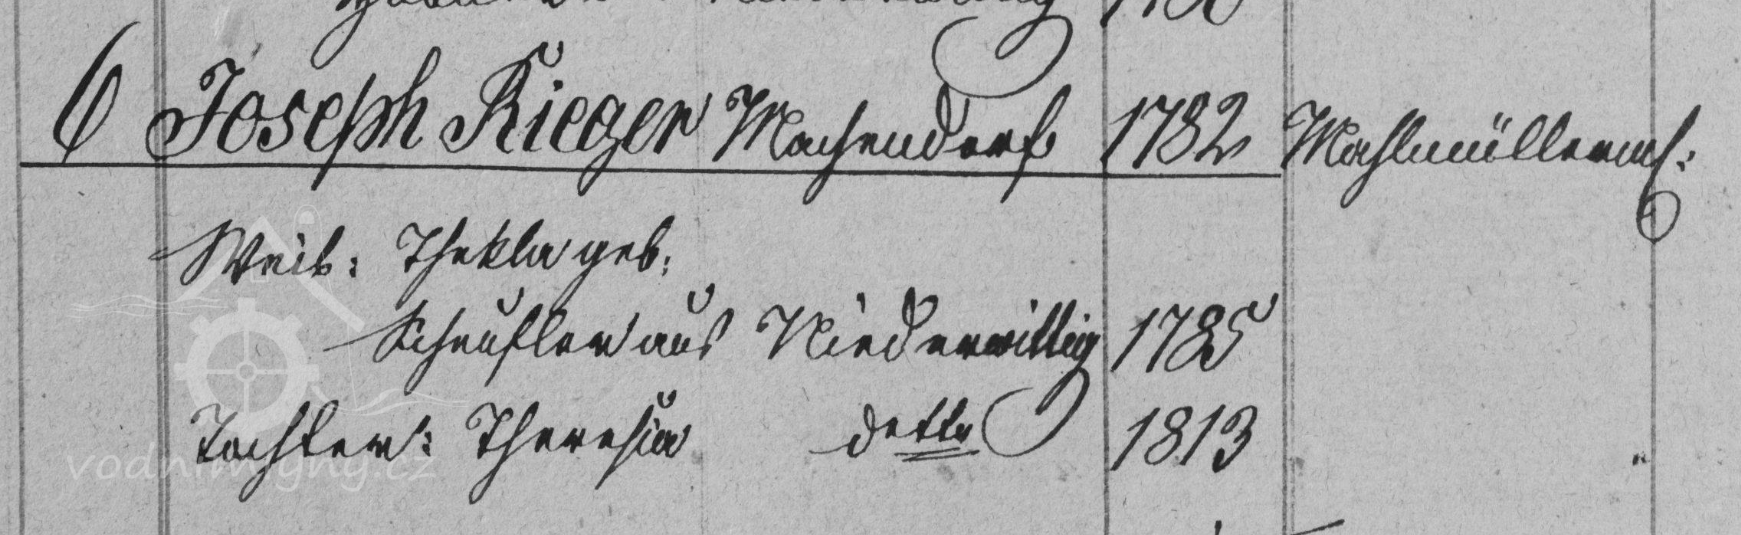 6 Joseph Rieger Machendorf 1782 Mahlmüllermst:
Weib: Thekla geb:
Scheufler aus Niederwittig 1785
Tochter: Theresia detto 1813
vodnimlyny.cz